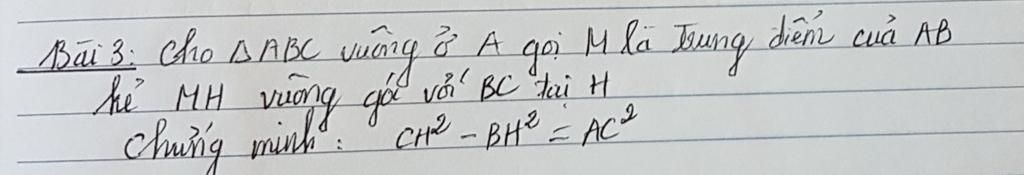 Bài 3: Cho △ABC vuông ở A gọi M là trung điểm của AB
kẻ MH vuông góc với BC tại H
Chứng minh: CH² - BH² = AC²